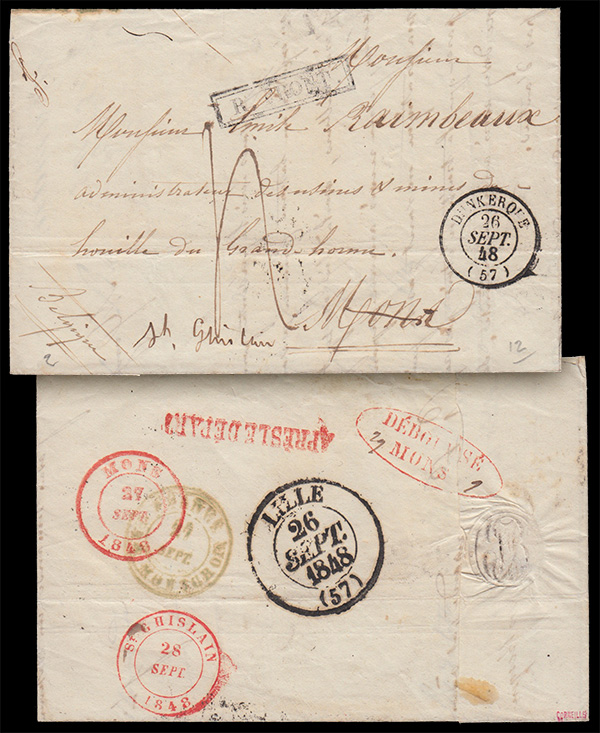 Monsieur
Monsieur Emile Raimbeaux
administrateur des usines & mines de
houille du Grand hornu.
Mons
St. Ghislain
Belgique
2
12
DUNKERQUE
26
SEPT.
48
(57)
APRÈS LE DEPART
DÉBOURSÉ
MONS
MONS
27
SEPT.
1848
SEPT.
LILLE
26
SEPT.
1848
(57)
ST GHISLAIN
28
SEPT.
1848
CORNEILLE